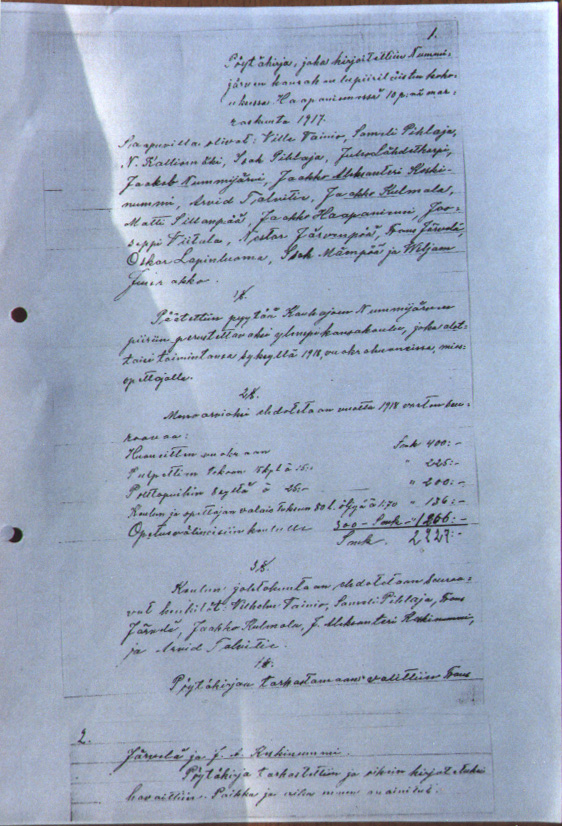 1.
Pöytäkirja, joka kirjoitettiin Nummi-
järven kansakoulupiiriläisten koko-
uksessa Haapaniemessä 10 p:nä mar-
raskuuta 1917.
Saapuvilla olivat: Ville Vainio, Samuli Pihlaja,
N. Kallionski, Isak Pihlaja, Juho Lähdekorpi,
Jaakob Nummijärvi, Jaakko Aleksanteri Koski-
nummi, Arvid Talvitie, Jaakko Kulmala,
Matti Sillanpää, Jaakko Haapaniemi, Joo-
seppi Viitala, Nestor Järvenpää, Frans Järvelä,
Oskar Lapinluoma, Isak Mämpää ja Viljam
1 §.
Päätettiin pyytää Kauhajoen Nummijärven
piiriin perustettavaksi ylempi kansakoulu, joka alot-
taisi toimintansa syksyllä 1918 vuokrahuoneissa, mies-
opettajalla.
2 §.
Menoarvioksi ehdotetaan vuotta 1918 varten seu-
raavaa:
Huoneitten vuokraan Smk 400:-
Pulpettien tekoon 15:- " 225:-
8 à 25:- " 200:-
Koulun ja opettajan valaistukseen 80 l. öljyä à 1:70 " 136:-
Opetusvälineisiin koululle 300 - Smk - 1266:-
Smk. 2227:-
3 §.
Koulun johtokuntaan ehdotetaan seuraa-
vat henkilöt: Vilhelm Vainio, Samuli Pihlaja, Frans
Järvelä, Jaakko Kulmala, J. Aleksanteri Koskinummi,
ja Arvid Talvitie.
Pöytäkirjaa tarkastamaan valittiin Frans
2.
Järvelä ja J. A. Koskinummi.
Pöytäkirja tarkastettiin ja oikein kirjoitetuksi
havaittiin. Paikka ja aika ennen mainitut.